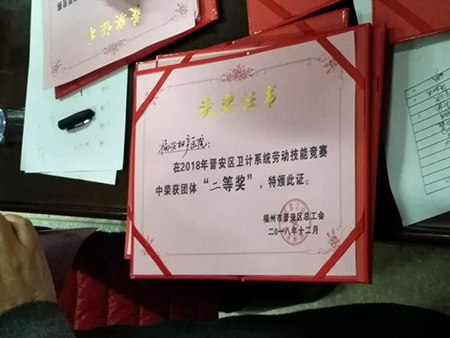 获奖证书
获奖证书
福兴妇产医院:
在2018年晋安区卫计系统劳动技能竞赛
中荣获团体“二等奖”,特颁此证。
福州市晋安区总工会
二〇一八年十二月